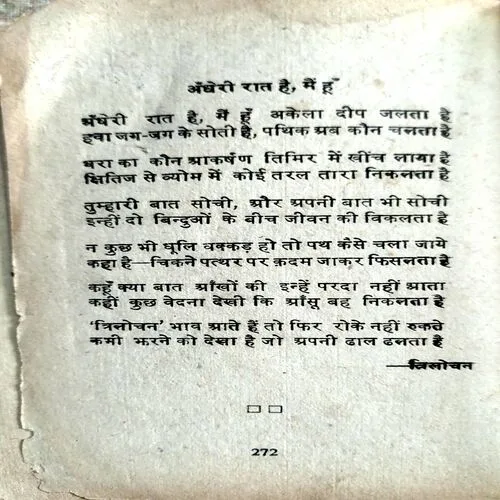 अँधेरी रात है, मैं हूँ
अँधेरी रात है, मैं हूँ अकेला दीप जलता है
हवा जग-जग के सोती है, पथिक अब कौन चलता है
धरा का कौन आकर्षण तिमिर में खींच लाया है
क्षितिज से व्योम में कोई तरल तारा निकलता है
तुम्हारी बात सोची, और अपनी बात भी सोची
इन्हीं दो बिन्दुओं के बीच जीवन की विकलता है
न कुछ भी धूलि धक्कड़ हो तो पथ कैसे चला जाये
कहा है—चिकने पत्थर पर क़दम जाकर फिसलता है
कहूँ क्या बात आँखों की इन्हें परदा नहीं आता
कहीं कुछ वेदना देखी कि आँसू बह निकलता है
'त्रिलोचन' भाव आते हैं तो फिर रोके नहीं रुकते
कभी झरने को देखा है जो अपनी ढाल ढलता है
—त्रिलोचन
272